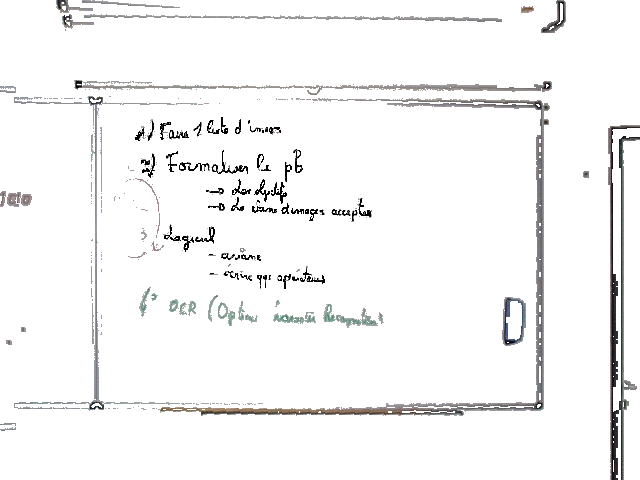 1) Faire 1 liste d'images
2) Formaliser le pb
→ Les objectifs
→ Le d'images acceptées
3 Logiciel
- ariane
- écrire qqs opérateurs
OCR (Option